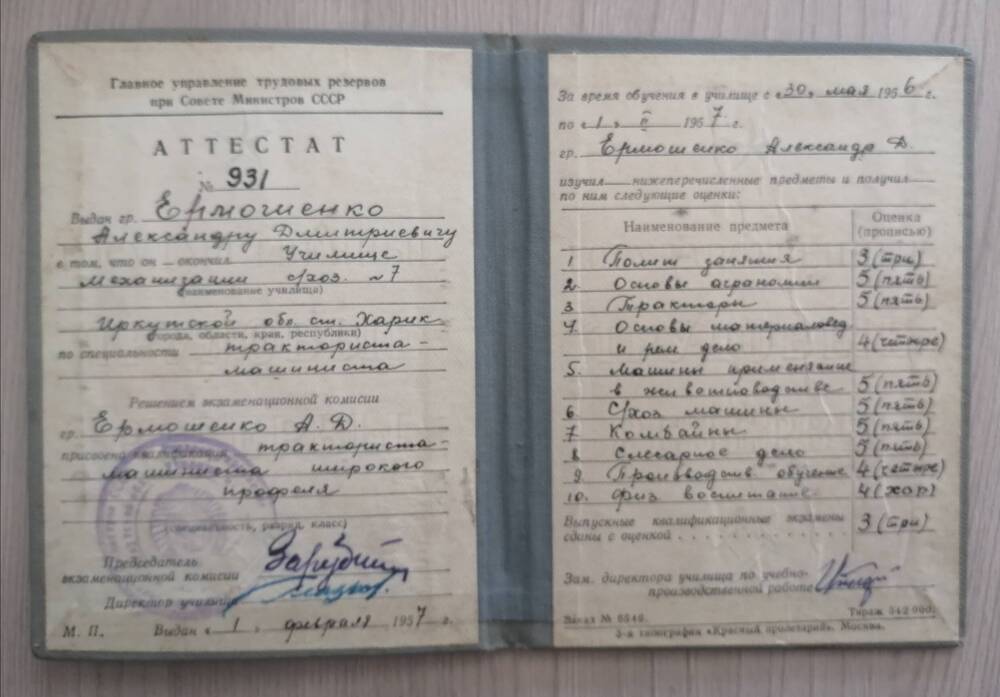 Главное управление трудовых резервов
при Совете Министров СССР
АТТЕСТАТ
№ 931
Выдан гр. Ермошенко
Александру Дмитриевичу
в том, что он окончил Училище
механизации с/хоз. №7
(наименование училища)
Иркутской обл. ст. Харик
города, области, края, республики)
по специальности тракториста-
машиниста
Решением экзаменационной комиссии
гр. Ермошенко А. Д.
присвоена квалификация тракториста-
машиниста широкого
профеля
(специальность, разряд, класс)
Председатель
экзаменационной комиссии
Директор училища
М. П. Выдан «1» февраля 1957 г.
За время обучения в училище с «30» мая 1956 г.
по «1» II 1957 г.
гр. Ермошенко Александр Д.
изучил нижеперечисленные предметы и получил
по ним следующие оценки:
Наименование предмета Оценка (прописью)
1 Полит занятия 3 (три)
2. Основы агрономии 5 (пять)
3 Тракторы 5 (пять)
4. Основы материаловед
и рем дело 4 (четыре)
5. Машины применяемые
в животноводстве 5 (пять)
6 С/хоз машины 5 (пять)
7 Комбайны 5 (пять)
8 Слесарное дело 5 (пять)
9. Производств обучение 4 (четыре)
10. Физ воспитание 4 (хор)
Выпускные квалификационные экзамены
сданы с оценкой 3 (три)
Зам. директора училища по учебно-
производственной работе
Заказ № 6546. Тираж 342 000.
3-я типография «Красный пролетарий», Москва.